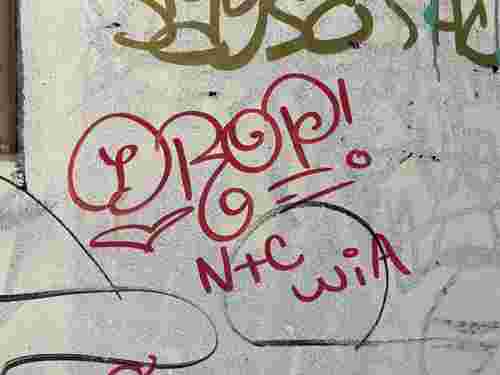 DROP!
N+C
WiA